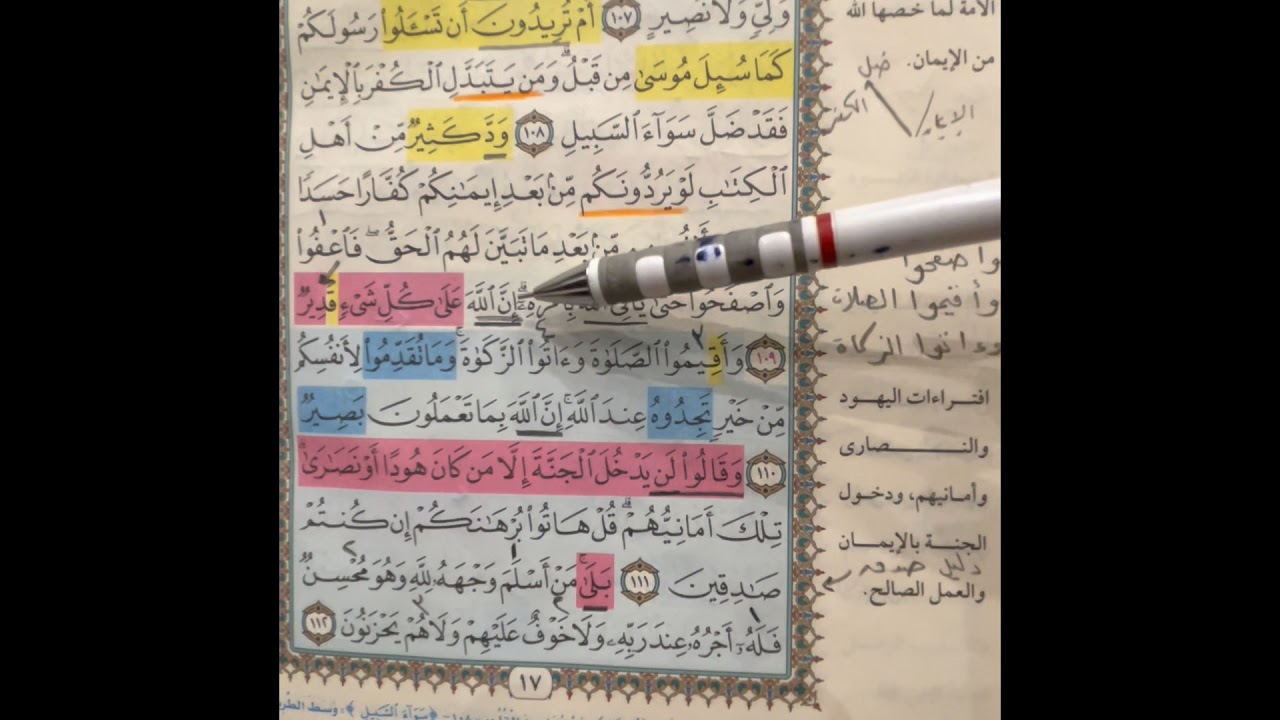 وَلِيٍّ وَلَا نَصِيرٍ ١٠٧ أَمْ تُرِيدُونَ أَن تَسْـَٔلُوا۟ رَسُولَكُمْ
كَمَا سُئِلَ مُوسَىٰ مِن قَبْلُ ۗ وَمَن يَتَبَدَّلِ ٱلْكُفْرَ بِٱلْإِيمَـٰنِ
فَقَدْ ضَلَّ سَوَآءَ ٱلسَّبِيلِ ١٠٨ وَدَّ كَثِيرٌ مِّنْ أَهْلِ
ٱلْكِتَـٰبِ لَوْ يَرُدُّونَكُم مِّنۢ بَعْدِ إِيمَـٰنِكُمْ كُفَّارًا حَسَدًا
مِّنۢ بَعْدِ مَا تَبَيَّنَ لَهُمُ ٱلْحَقُّ ۖ فَٱعْفُوا۟
وَٱصْفَحُوا۟ حَتَّىٰ يَأْتِىَ ٱللَّهُ بِأَمْرِهِۦٓ ۗ إِنَّ ٱللَّهَ عَلَىٰ كُلِّ شَىْءٍ قَدِيرٌ
١٠٩ وَأَقِيمُوا۟ ٱلصَّلَوٰةَ وَءَاتُوا۟ ٱلزَّكَوٰةَ ۚ وَمَا تُقَدِّمُوا۟ لِأَنفُسِكُم
مِّنْ خَيْرٍ تَجِدُوهُ عِندَ ٱللَّهِ ۗ إِنَّ ٱللَّهَ بِمَا تَعْمَلُونَ بَصِيرٌ
١١٠ وَقَالُوا۟ لَن يَدْخُلَ ٱلْجَنَّةَ إِلَّا مَن كَانَ هُودًا أَوْ نَصَـٰرَىٰ ۗ
تِلْكَ أَمَانِيُّهُمْ ۗ قُلْ هَاتُوا۟ بُرْهَـٰنَكُمْ إِن كُنتُمْ
صَـٰدِقِينَ ١١١ بَلَىٰ ۚ مَنْ أَسْلَمَ وَجْهَهُۥ لِلَّهِ وَهُوَ مُحْسِنٌ
فَلَهُۥٓ أَجْرُهُۥ عِندَ رَبِّهِۦ وَلَا خَوْفٌ عَلَيْهِمْ وَلَا هُمْ يَحْزَنُونَ ١١٢
١٧
﴿سَوَآءَ ٱلسَّبِيلِ﴾: وسط
الأمة لما خصها الله
من الإيمان.
ضل
الكفر
الإيمان
واصفحوا
وأقيموا الصلاة
وءاتوا الزكاة
افتراءات اليهود
والنصارى
وأمانيهم، ودخول
الجنة بالإيمان
دليل صدقه
والعمل الصالح.